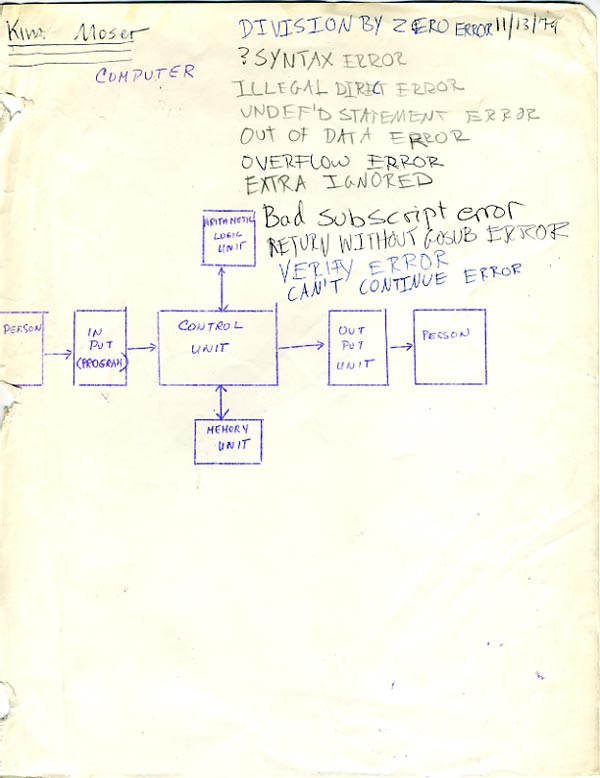 Kim Moser
DIVISION BY ZERO ERROR 11/13/79
COMPUTER
?SYNTAX ERROR
ILLEGAL DIRECT ERROR
UNDEF'D STATEMENT ERROR
OUT OF DATA ERROR
OVERFLOW ERROR
EXTRA IGNORED
Bad subscript error
RETURN WITHOUT GOSUB ERROR
VERIFY ERROR
CAN'T CONTINUE ERROR
ARITHMETIC
LOGIC
UNIT
PERSON
IN
PUT
(PROGRAM)
CONTROL
UNIT
OUT
PUT
UNIT
PERSON
MEMORY
UNIT